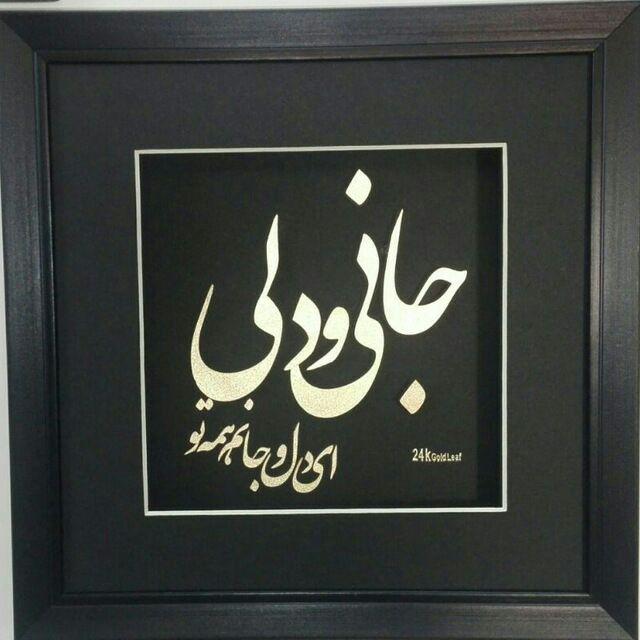 جانی و دلی
ای دل و جانم همه تو
24k Gold Leaf